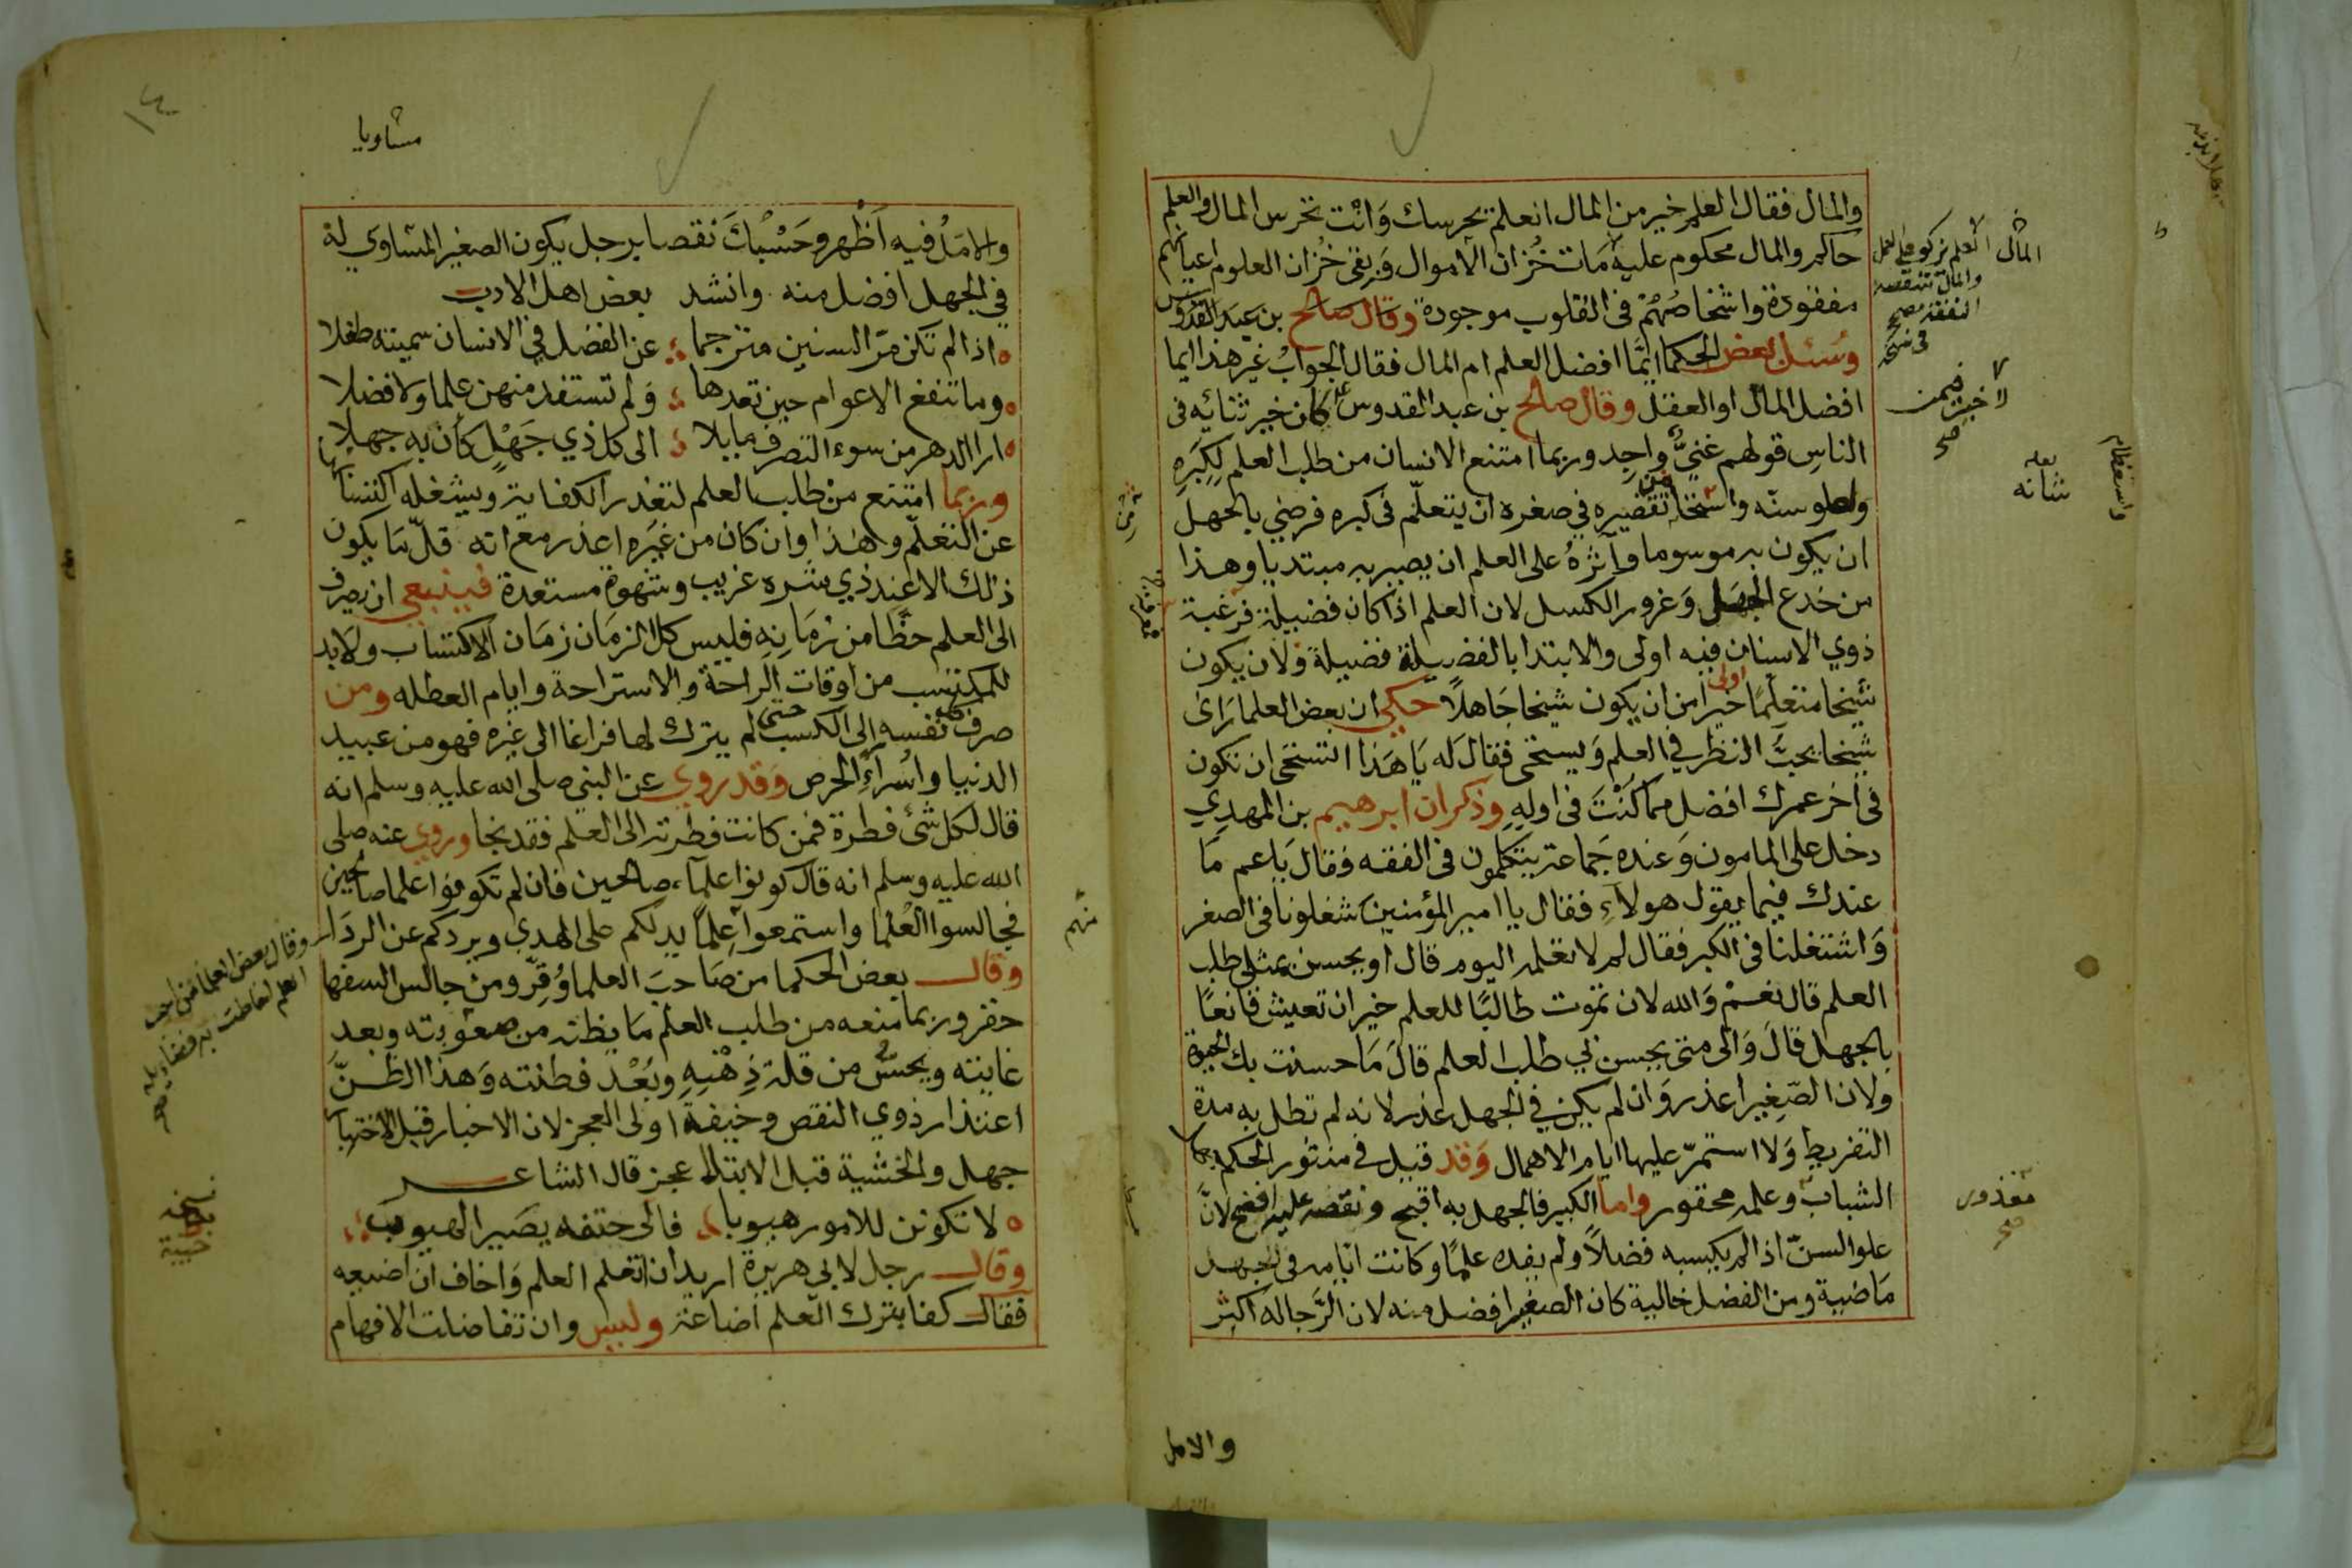 والمال فقال العلم خير من المال العلم يحرسك وَانْت تحرس المال والعلم
حاكم والمال محكوم عليه مَات خُزان الاموال وَبقى خُزان العلوم اعيانهم
مفقودة واشخاصُهُمْ فى القلوب موجودة وقال صالح بن عبد القدوس
وسئل بعض الحكما ايمّا افضل العلم ام المال فقال الجوابُ غير هذا ايما
افضل المال او العقل وقال صالح بن عبد القدوس كان خير ثنائه فى
الناس قولهم غنيٌّ واحِد وربما امتنع الانسان من طلب العلم لِكِبَرِهِ
ولعلو سنّه واستحيا من تقصيره في صغره ان يتعلّم فى كبره فرضي بالجهل
ان يكون به موسوما وآثرهُ على العلم ان يصير به مبتديا وهذا
من خدع الجهل وَغرور الكسل لان العلم اذا كان فضيلة فرغبة
ذوي الاسنان فيه اولى والابتدا بالفضيلة فضيلة وَلان يكون
شيخا متعلّمًا خيرا اولى من ان يكون شيخا جَاهلًا حكي ان بعض العلما رَاى
شيخا يحبَّ النظر في العلم وَيستحى فقال لَه يَا هَذا اتستحى ان تكون
فى آخر عمرك افضل مما كُنْتَ فى اولِهِ وذكر ان ابرهيم بن المهدي
دخل على المامون وَعنده جَماعة يتكلمون فى الفقه فقال يَا عم مَا
عندك فيما يقول هولآءِ فقال يا امير المؤمنين شغلونا فى الصغر
وَاشتغلنا فى الكبر فقال لم لا تعلمه اليوم قال او يحسن بمثلى طلب
العلم قال نعمْ وَالله لان تموت طالبًا للعلم خير ان تعيش قانعًا
بالجهل قالَ وَالى متى يحسن بي طلب العلم قالَ مَا حسنت بك الحيوة
ولان الصّغِير اعذر وَان لم يكن في الجهل عذر لانه لم تطل به مدة
التفريط وَلا استمرّ عليها ايام الاهمال وَقد قيل في منثور الحكم جهل
الشباب وعلمه محقور واما الكبير فالجهل به اقبح ونقصه عليه افضح لانّ
علو السنّ اذا لم يكسبه فضلاً ولم يفده علمًا وكانت ايّامه فى الجهل
مَاضية ومن الفضل خالية كان الصغير افضل منه لان الرَّجا له اكثر
العلم يزكو على العمل
والمال تنقصه
النفقة صح
فى نسخه
المال
لا خير فيمن
صح
لعله
شانه
معذور
صح
والامل
١٤
مشاويا
والامَلُ فيه اَظْهر وحَسْبُكَ نقصا برجل يكون الصغير المساوي لهُ
في الجهل افضل منه وانشد بعض اهل الادب
اذا لم تكن مرّ السنين مترجما عن الفضل فى الانسان سميته طفلا
وما تنفع الاعوام حين تعدها وَلم تستفد منهن علما ولا فضلا
ارا الدهر من سوء التصرف مايلا الى كل ذي جَهْلٍ كأن به جهلا
وربما امتنع من طلب العلم لتعذر الكفاية ويشغله اكتسابها
عن التعلّم وهٰذا وان كان من غيْرِهِ اعذر مع انه قلّ مَا يكون
ذلك الا عند ذي شره غريب وشهوة مستعدة فينبغي ان يصرف
الى العلم حظًّا من زمَانِهِ فليس كل الزمَان زمَان الاكتساب ولابد
للمكتسب من اوقات الراحة والاستراحة وايام العطله ومن
صرف نفسه الى الكسب حتى لم يترك لها فراغا الى غيره فهو من عبيد
الدنيا واُسْراءِ الحرص وَقد روي عن النبي صلى الله عليه وسلم انه
قال لكل شئ فطرة فمن كانت فطرته الى العلم فقد نجا وروي عنه صلى
الله عليه وسلم انه قال كونوا علمآء صالحين فان لم تكونوا علما صالحين
فجالسوا العُلما واستمعوا عِلمًا يدلكم على الهدي ويردكم عن الردَا
وقال بعض الحكما من صَاحبَ العلما وُقِّر ومن جالس السفها
حقر وربما منعه من طلب العلم مَا يظنه من صعوبته وبعد
غايته ويخشى من قلة ذِهْنِهِ وبُعْد فطنته وَهذا الظنَّ
اعتذار ذوي النقص وخيفة اولى العجز لان الاخبار قبل الاختبار
جهل والخشية قبل الابتلا عجز قال الشاعر
لا تكونن للامور هيوبا فالى حتفه يصَير الهيوب
وقال رجل لابي هريرة اريد ان اتعلم العلم وَاخاف ان اضيعه
فقال كفا بترك العلم اضاعة وليس وان تفاضلت الافهام
وقال بعض العلما من احب
العلم احاطت به فضايله
صح
نسخه
منهم